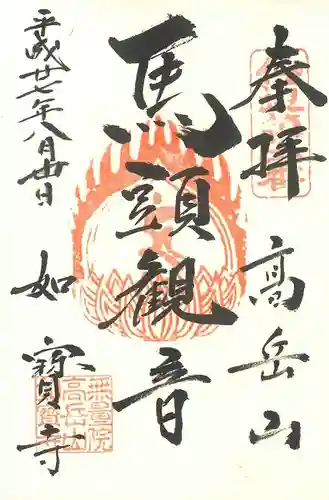 奉拝
高岳山
馬頭観音
平成廿七年八月廿日
如寳寺
無量院
高岳山